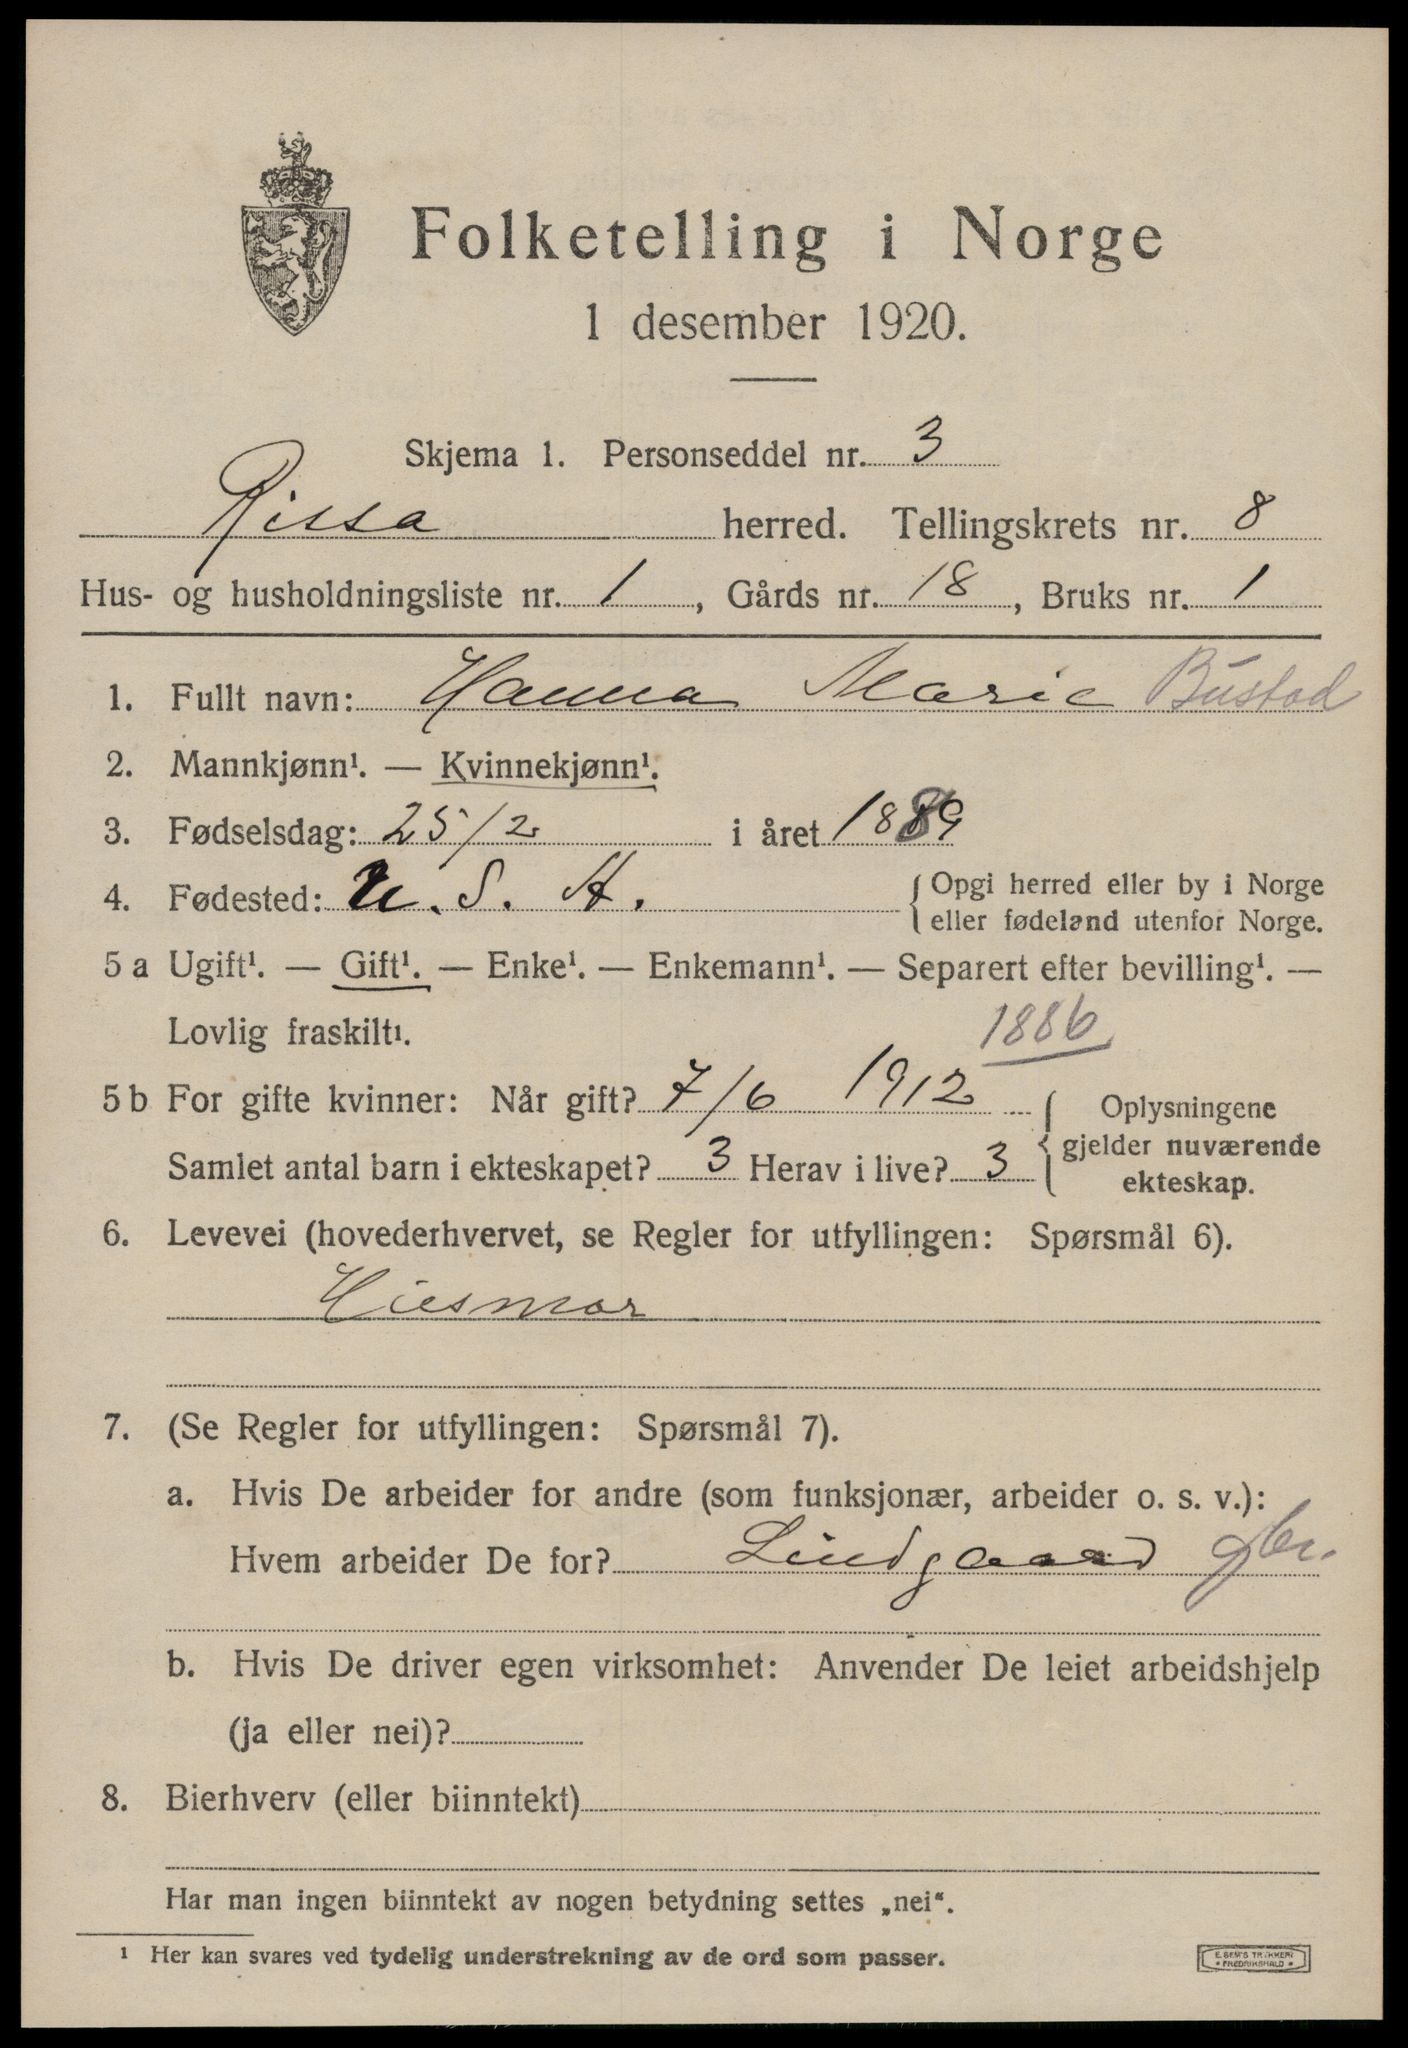 Folketelling i Norge
1 desember 1920.
Skjema 1. Personseddel nr. 3
Rissa herred. Tellingskrets nr. 8
Hus- og husholdningsliste nr. 1, Gårds nr. 18, Bruks nr. 1
1. Fullt navn: Hanna Marie Bustad
2. Mannkjønn¹. — Kvinnekjønn¹.
3. Fødselsdag: 25/2 i året 1889
4. Fødested: U. S. A. { Opgi herred eller by i Norge
eller fødeland utenfor Norge.
5 a Ugift¹. — Gift¹. — Enke¹. — Enkemann¹. — Separert efter bevilling¹. —
Lovlig fraskilt¹.
1886
5 b For gifte kvinner: Når gift? 7/6 1912 { Oplysningene
gjelder nuværende
Samlet antal barn i ekteskapet? 3 Herav i live? 3
ekteskap.
6. Levevei (hovederhvervet, se Regler for utfyllingen: Spørsmål 6).
Husmor
7. (Se Regler for utfyllingen: Spørsmål 7).
a. Hvis De arbeider for andre (som funksjonær, arbeider o. s. v.):
Hvem arbeider De for? Lindgaard
b. Hvis De driver egen virksomhet: Anvender De leiet arbeidshjelp
(ja eller nei)?
8. Bierhverv (eller biinntekt)
Har man ingen biinntekt av nogen betydning settes „nei".
¹ Her kan svares ved tydelig understrekning av de ord som passer.
E. SEM'S TRYKKERI
FREDRIKSHALD